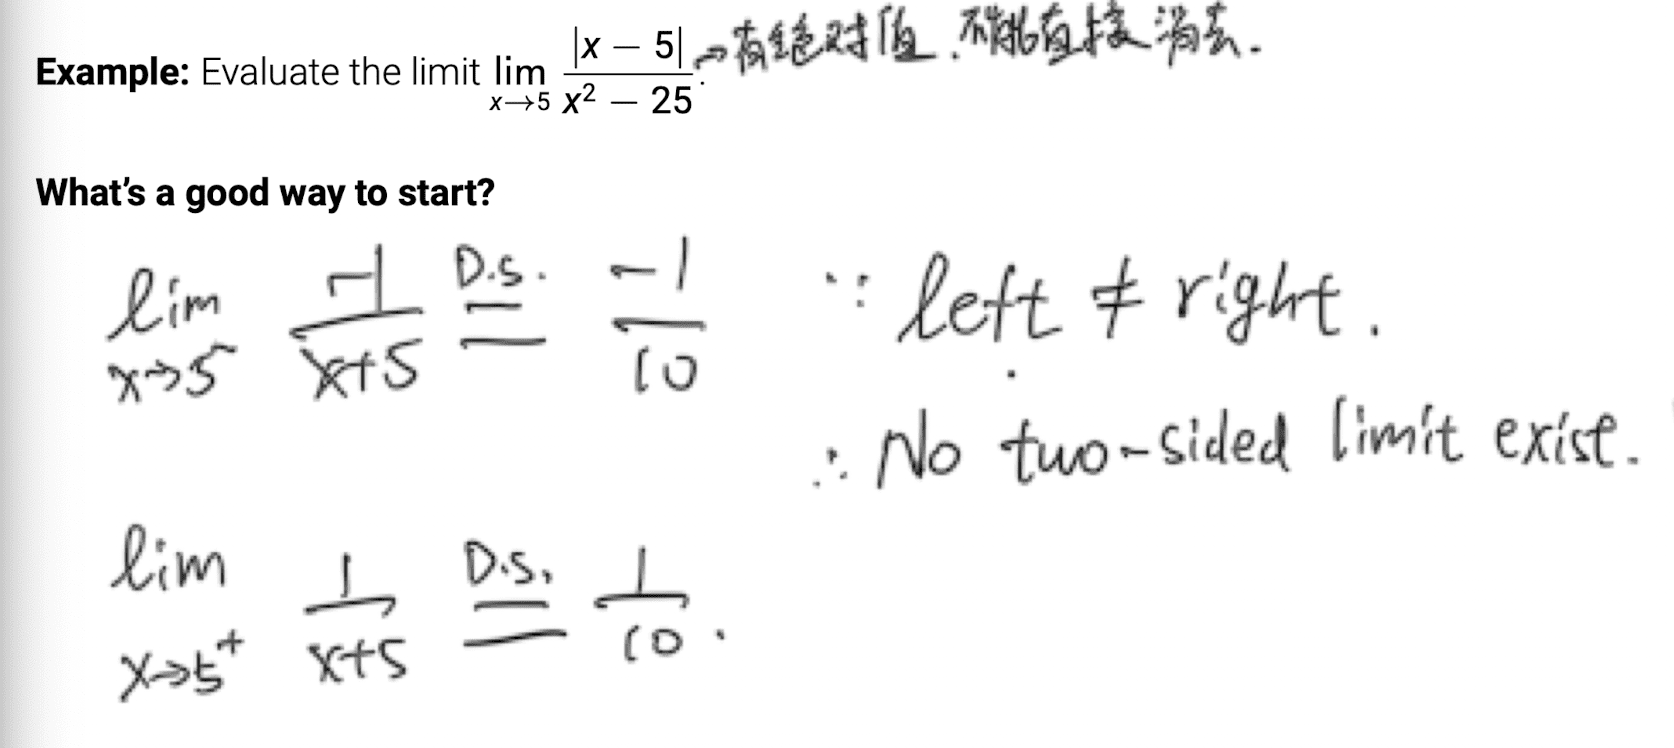 Example: Evaluate the limit lim x→5 |x − 5| / x² − 25. → 有绝对值.不能直接消去.
What's a good way to start?
lim x→5⁻ -1/x+5 D.S. = -1/10 ∵ left ≠ right.
∴ No two-sided limit exist.
lim x→5⁺ 1/x+5 D.S. = 1/10.